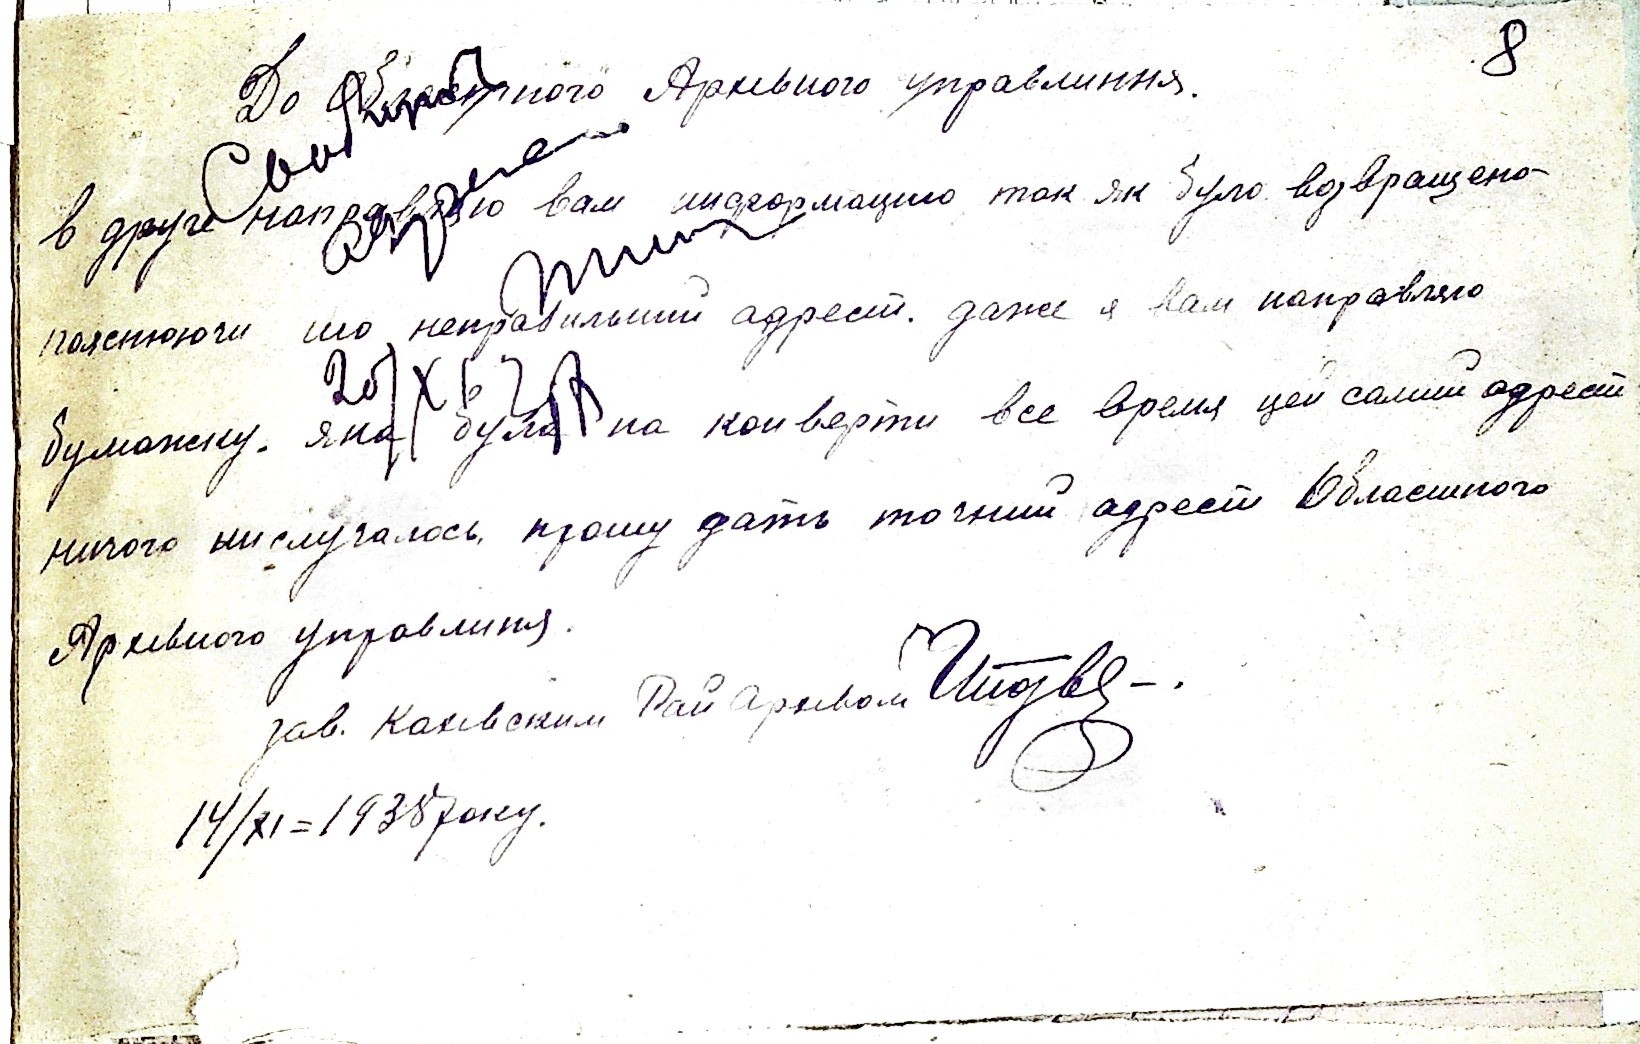 8
До Обласного Архівного управлиння.
в друге направляю вам информацию так як було возвращено
пояснюючи що неправильний адрест. даже я вам направляю
бумажку. яка була на конверти все время цей самий адрест
ничого нислучалось, прошу дать точний адрест Обласного
Архівного управлиня.
зав. Каневским Рай Архівом
14/XI=1938 року.